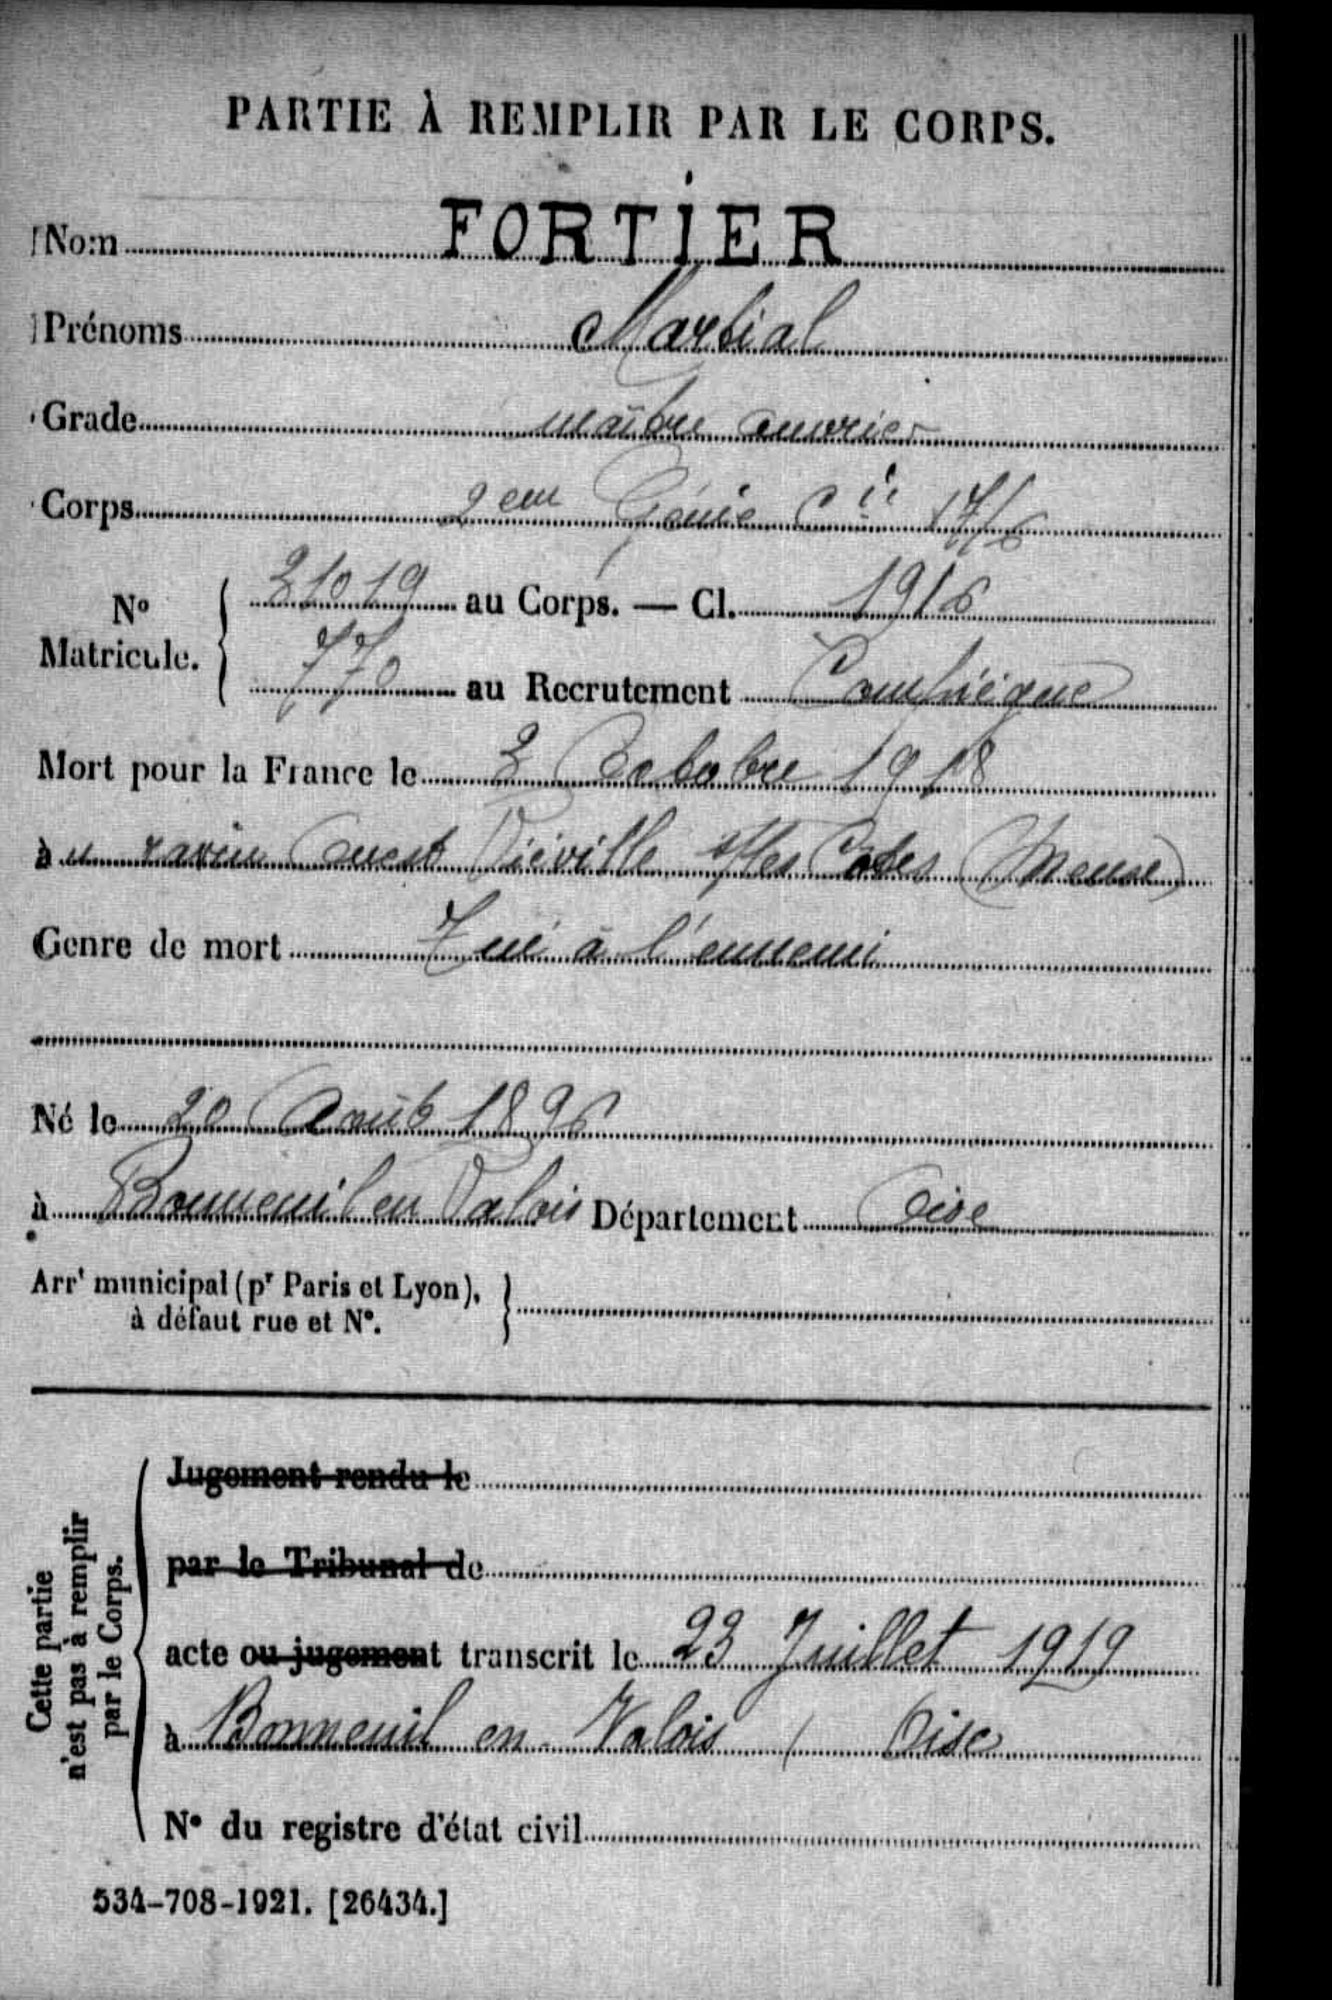 PARTIE À REMPLIR PAR LE CORPS.
Nom FORTIER
Prénoms Martial
Grade maître ouvrier
Corps 2eme Génie Cie 17/6
No Matricule. 21019 au Corps. — Cl. 1916
770 au Recrutement Compiègne
Mort pour la France le 3 Octobre 1918
à u ravin Ouest Viéville s/les Côtes (Meuse)
Genre de mort Tué à l'ennemi
Né le 20 Août 1896
à Bonneuil en Valois Département Oise
Arrt municipal (pr Paris et Lyon),
à défaut rue et No.
Cette partie
n'est pas à remplir
par le Corps.
Jugement rendu le
par le Tribunal de
acte ou jugement transcrit le 23 Juillet 1919
à Bonneuil en Valois ( Oise
No du registre d'état civil
534-708-1921. [26434.]